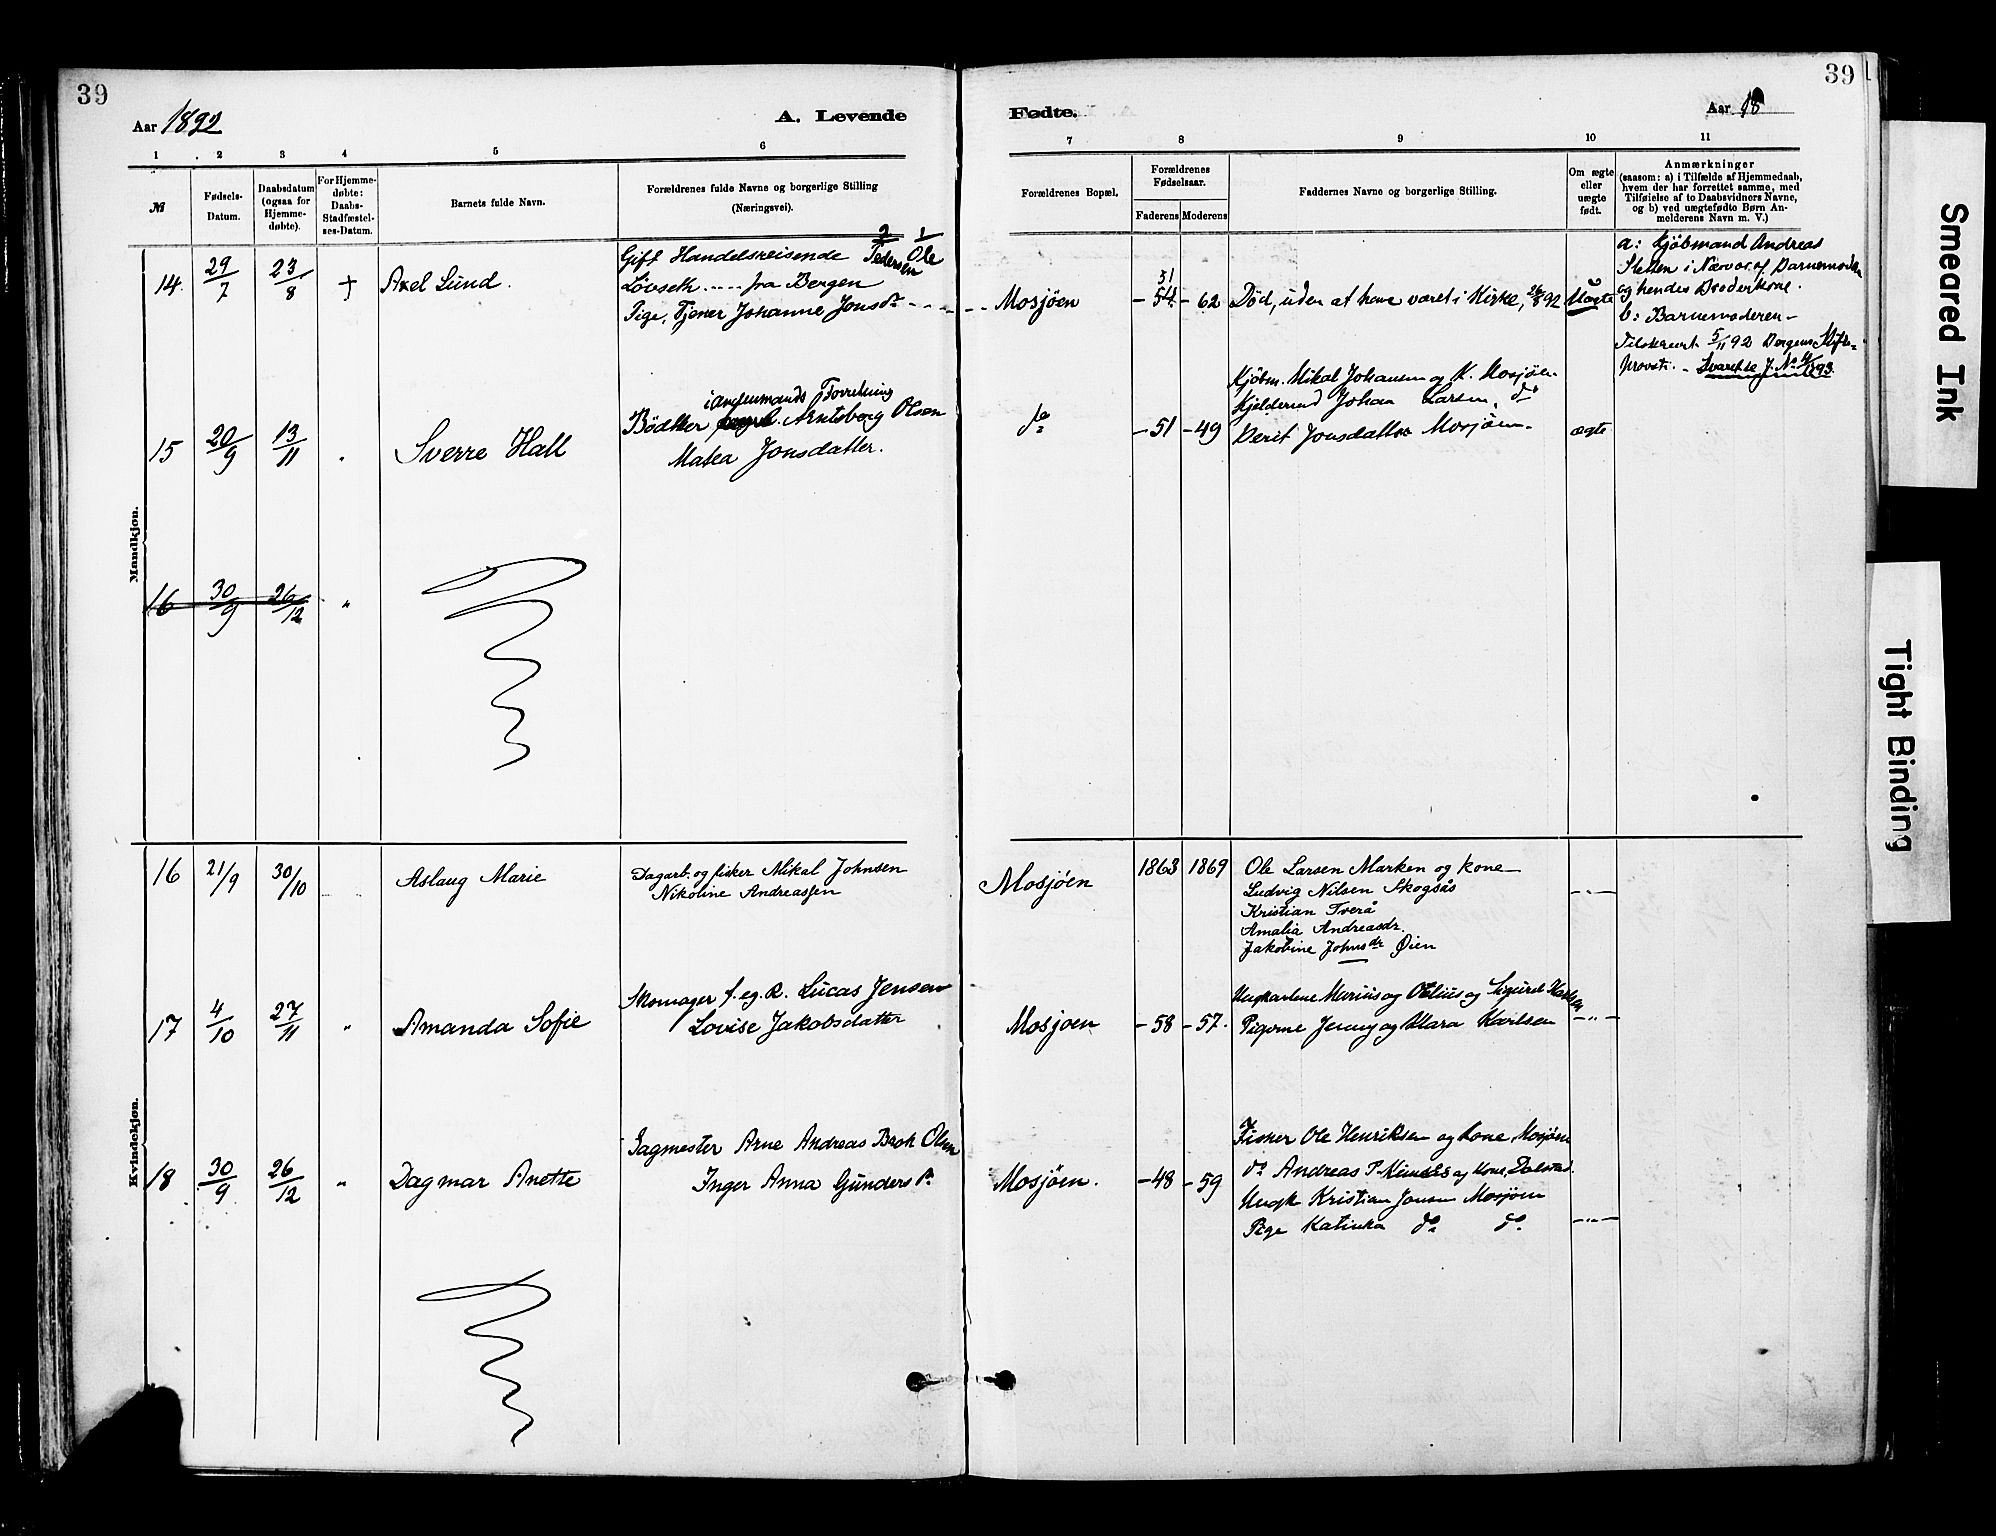 39
Aar 1892
A. Levende
1 2 3 4 5 6
№
Fødsels-
Datum.
Daabsdatum
(ogsaa for
Hjemme-
døbte).
For Hjemme-
døbte:
Daabs-
Stadfæstel-
ses-Datum.
Barnets fulde Navn.
Forældrenes fulde Navne og borgerlige Stilling
(Næringsvei).
Mandkjøn.
14 29/7 23/8 † Axel Lund.
2 1
Gift Handelsreisende Pedersen Ole
Løvseth ..... fra Bergen
Pige, Tjener Johanne Jonsdr
15 20/9 13/11 " Sverre Hall
i Forretning
Bødtker Arntsberg Olsen
Matea Jonsdatter.
16 30/9 26/12 "
Kvindekjøn.
16 21/9 30/10 Aslaug Marie
Dagarb. og fisker Mikal Johnsen
Nikoline Andreassen
17 4/10 27/11 " Amanda Sofie
Skomager f. eg. R. Lucas Jensen
Lovise Jakobsdatter
18 30/9 26/12 " Dagmar Anette
Sagmester Arne Andreas Brok Olsen
Inger Anna Gunders Dr.
39
Fødte.
Aar 18
7 8 9 10 11
Forældrenes Bopæl.
Forældrenes
Fødselsaar.
Faderens Moderens
Faddernes Navne og borgerlige Stilling.
Om ægte
eller
uægte
født.
Anmærkninger
(saasom: a) i Tilfælde af Hjemmedaab,
hvem der har forrettet samme, med
Tilføielse af to Daabsvidners Navne,
og b) ved uægtefødte Børn An-
melderens Navn m. V.)
Mosjöen
51
-54 -62 Död, uden at have været i Kirke, 26/8 92 Uægte
a: Kjöbmand Andreas
Sletten i Nærvær. af Barnemoderen
og hendes Broderkone.
b: Barnemoderen -
Tilskrevet 5/11 92 Bergens Stifts-
provsti. - Svaret se J. No
do -51 -49
Kjöbm. Mikal Johansen og K. Mosjöen
Johan Larsen, do
Berit Jonsdatter Mosjöen.
ægte
Mosjöen 1863 1869
Ole Larsen Marken og kone
Ludvig Nilsen Skogsås
Kristian Tverå
Amalia Andreasdr.
Jakobine Johnsdr Øien
-"-
Mosjoen -58 -57.
Ungkarlene Marius og Otelius og Sigurd Karlsen
Pigerne Jenny og Klara Karlsen
-"-
Mosjöen. -48 -59
Fisker Ole Henriksen og kone, Mosjöen
do Andreas P. og kone, Dolstad.
Ungk Kristian Jonsen Mosjöen
Pige Katinka do do
-"-
Smeared Ink
Tight Binding